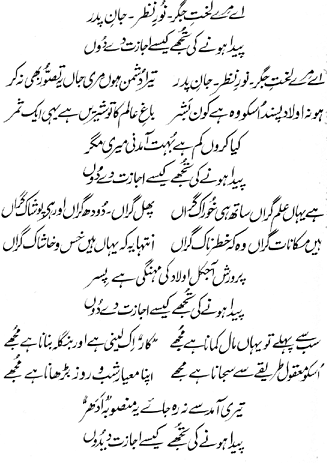 اے مرے لختِ جگر۔ نورِ نظر۔ جانِ پدر
پیدا ہونے کی تجھے کیسے اجازت دے دوں
اے مرے لختِ جگر۔ نورِ نظر۔ جانِ پدر تیرا دشمن ہوں مری جاں یہ تصور بھی نہ کر
ہو نہ اولاد پسند اسکو وہ ہے کون بشر باغِ عالم کا تو شیریں ہے یہی ایک ثمر
کیا کروں کم ہے بہت آمدنی میری مگر
پیدا ہونے کی تجھے کیسے اجازت دے دوں
ہے یہاں علم گراں ساتھ ہی خوراک گراں پھل گراں۔ دودھ گراں اور ہی پوشاک گراں
ہیں مکانات گراں وہ کہ خطرناک گراں انتہا یہ کہ یہاں ہیں خس و خاشاک گراں
پرورش آجکل اولاد کی مہنگی ہے پسر
پیدا ہونے کی تجھے کیسے اجازت دے دوں
سب سے پہلے تو یہاں مال کمانا ہے مجھے کار اک لینی ہے اور بنگلہ بنانا ہے مجھے
اسکو معقول طریقے سے سجانا ہے مجھے اپنا معیار شب و روز بڑھانا ہے مجھے
تیری آمد سے نہ رہ جائے یہ منصوبہ ادھر
پیدا ہونے کی تجھے کیسے اجازت دیدوں